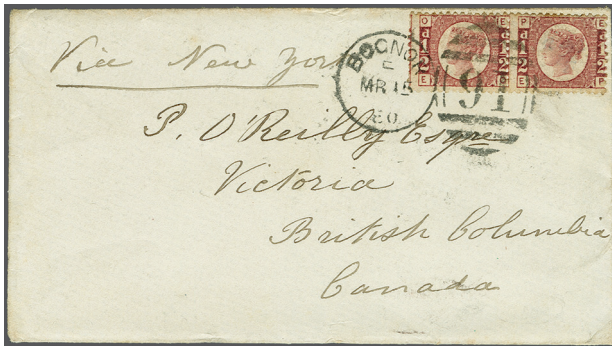 Via New York
BOGNOR
E
MR 15
80
91
O E
d 1/2 d 1/2
E O
P E
d 1/2 d 1/2
E P
P. O'Reilly Esqre
Victoria
British Columbia
Canada